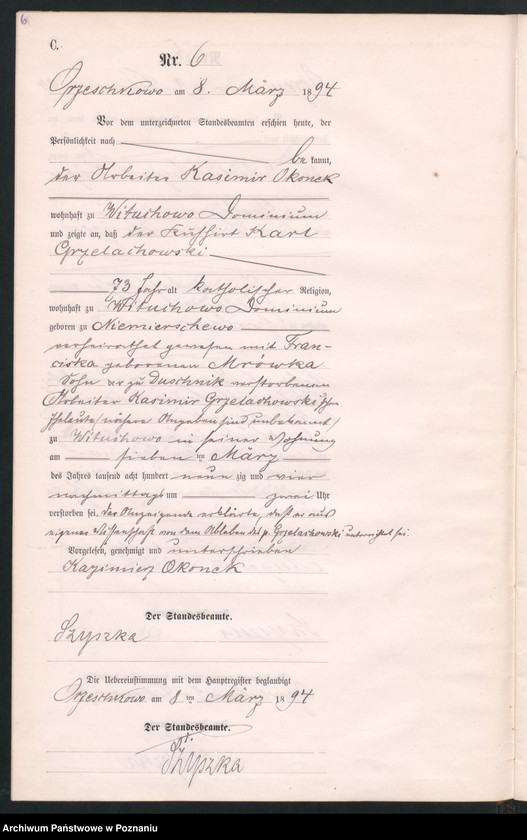 6
C.
Nr. 6
Orzeschkowo am 8. März 1894
Vor dem unterzeichneten Standesbeamten erschien heute, der
Persönlichkeit nach
be kannt,
der Arbeiter Kasimir Okonek
wohnhaft zu Wituchowo Dominium
und zeigte an, daß der Kuhhirt Karl
Grzelachowski
73 Jahr alt katholischer Religion,
wohnhaft zu Wituchowo Dominium
geboren zu Niemierschewo
verheirathet gewesen mit Fran-
ciska geborenen Mrówka
Sohn der zu Duschnik verstorbenen
Arbeiter Kasimir Grzelachowski'schen
Eheleute /nähere Angaben sind unbekannt/
zu Wituchowo in seiner Wohnung
am sieben ten März
des Jahres tausend acht hundert neun zig und vier
nachmittags um zwei Uhr
verstorben sei. Der Anzeigende erklärte, daß er aus
eigener Wissenschaft von dem Ableben des p. Grzelachowski unterrichtet sei.
Vorgelesen, genehmigt und unterschrieben
Kazimierz Okonek
Der Standesbeamte.
Szyszka
Die Uebereinstimmung mit dem Hauptregister beglaubigt
Orzeschkowo am 8 ten März 1894
Der Standesbeamte.
Szyszka
Archiwum Państwowe w Poznaniu